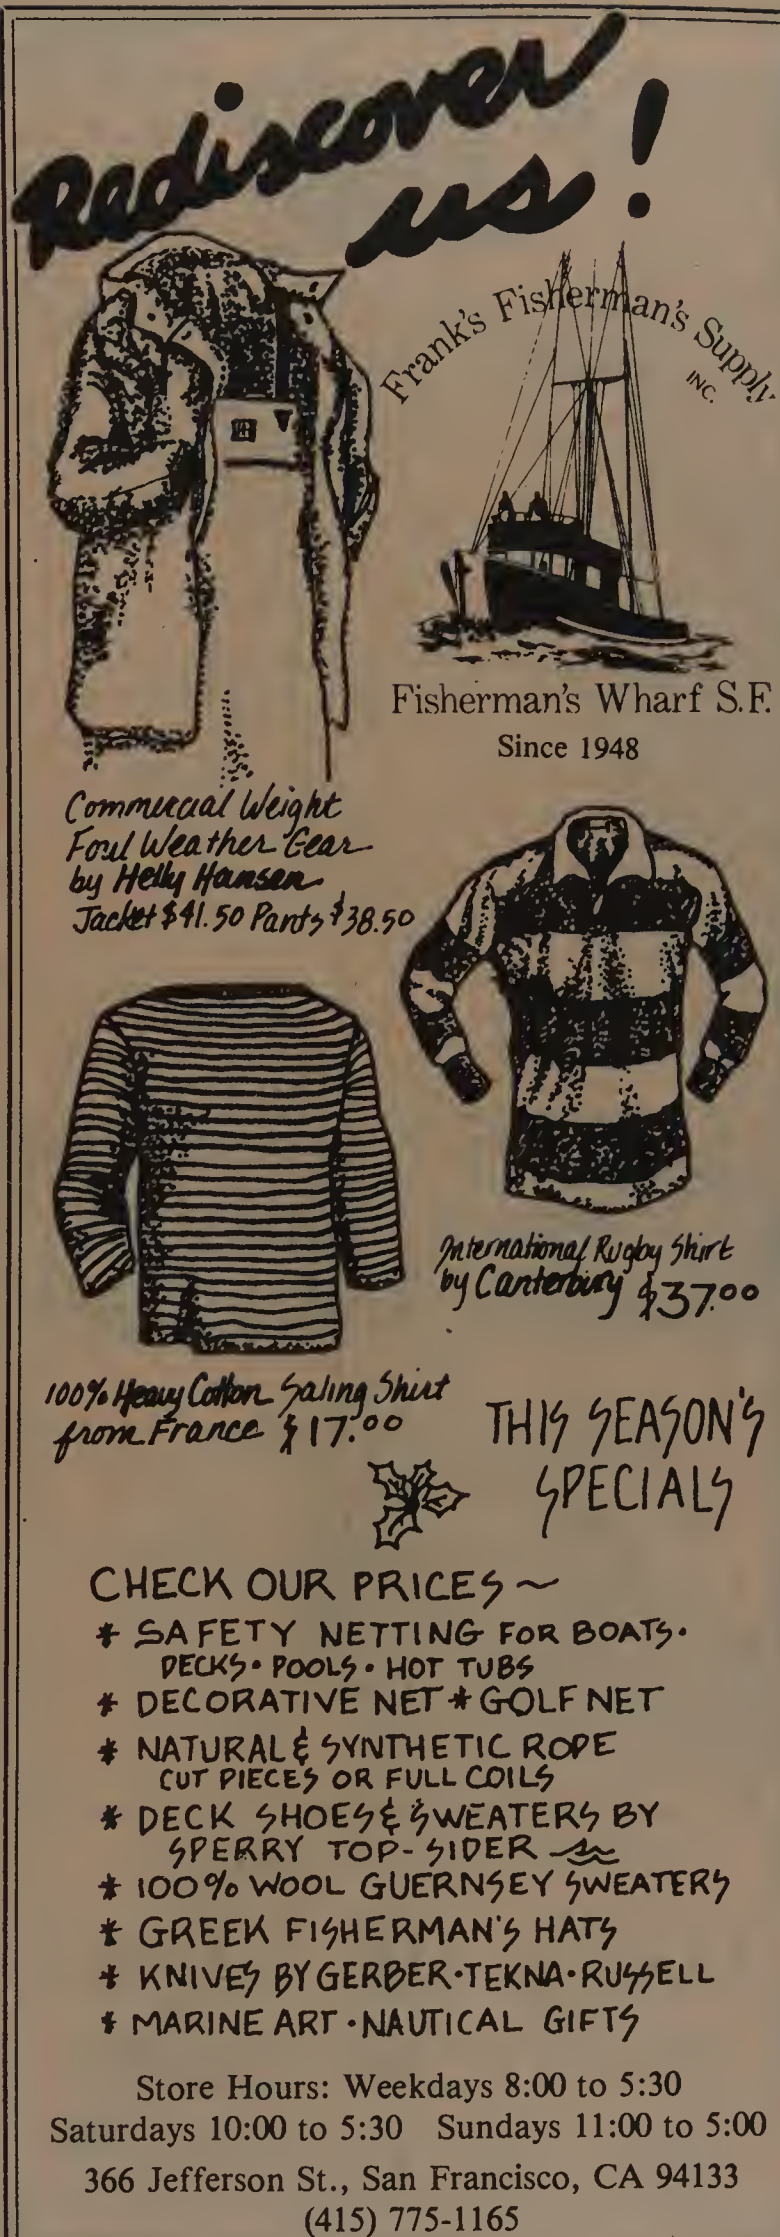 Rediscover
us!
Frank's Fisherman's Supply
INC.
Fisherman's Wharf S.F.
Since 1948
Commercial Weight
Foul Weather Gear
by Helly Hansen
Jacket $41.50 Pants $38.50
International Rugby Shirt
by Canterbury $37.00
100% Heavy Cotton Saling Shirt
from France $17.00
THIS SEASON'S
SPECIALS
CHECK OUR PRICES ~
* SAFETY NETTING FOR BOATS •
DECKS • POOLS • HOT TUBS
* DECORATIVE NET * GOLF NET
* NATURAL & SYNTHETIC ROPE
CUT PIECES OR FULL COILS
* DECK SHOES & SWEATERS BY
SPERRY TOP-SIDER
* 100% WOOL GUERNSEY SWEATERS
* GREEK FISHERMAN'S HATS
* KNIVES BY GERBER • TEKNA • RUSSELL
* MARINE ART • NAUTICAL GIFTS
Store Hours: Weekdays 8:00 to 5:30
Saturdays 10:00 to 5:30 Sundays 11:00 to 5:00
366 Jefferson St., San Francisco, CA 94133
(415) 775-1165